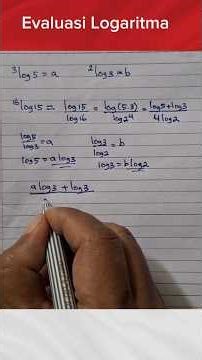 Evaluasi Logaritma
³log 5 = a   ²log 3 = b
¹⁶log 15 = log 15 / log 16 = log (5.3) / log 2⁴ = log 5 + log 3 / 4 log 2
log 5 / log 3 = a   log 3 / log 2 = b
log 5 = a log 3   log 3 = b log 2
a log 3 + log 3